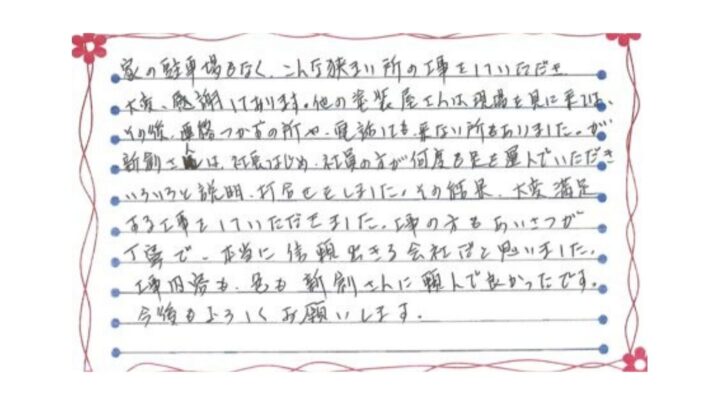 家の駐車場もなく、こんな狭い所の工事をしていただき
大変、感謝しております。他の塗装屋さんは現場を見に来ては、
その後、連絡つかずの所や、電話しても来ない所もありました。が
新創さんは、社長はじめ、社員の方が何度も足を運んでいただき
いろいろと説明、打合せをしました。その結果、大変満足
する工事をしていただきました。工事の方もあいさつが
丁寧で、本当に信頼出きる会社だと思いました。
工事内容も、色も新創さんに頼んで良かったです。
今後もよろしくお願いします。